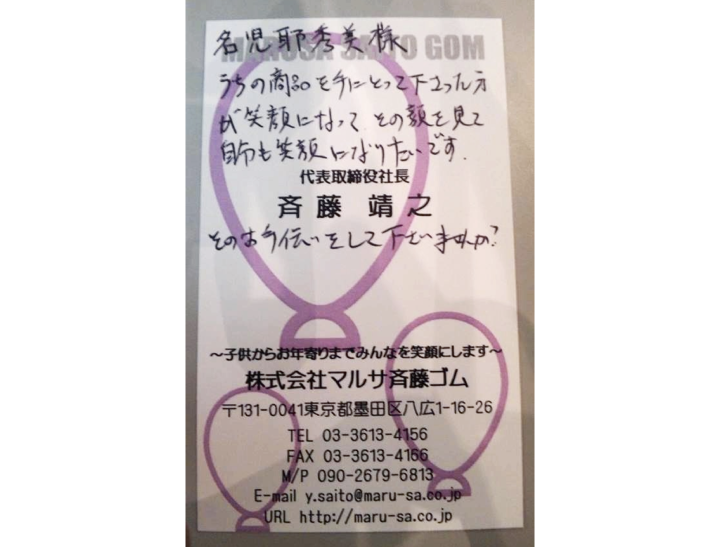 名児耶秀美様
MARUSA SAITO GOM
うちの商品を手にとって下さった方
が笑顔になって、その顔を見て
自分も笑顔になりたいです。
代表取締役社長
斉藤 靖之
そのお手伝いをして下さいませんか?
～子供からお年寄りまでみんなを笑顔にします～
株式会社マルサ斉藤ゴム
〒131-0041東京都墨田区八広1-16-26
TEL 03-3613-4156
FAX 03-3613-4166
M/P 090-2679-6813
E-mail y.saito@maru-sa.co.jp
URL http://maru-sa.co.jp